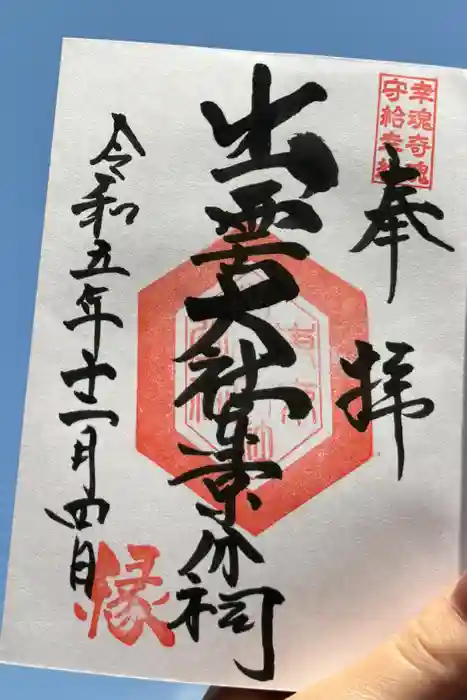 幸魂奇魂
守給幸給
奉拝
出雲大社東京分祠
令和五年十二月四日
縁